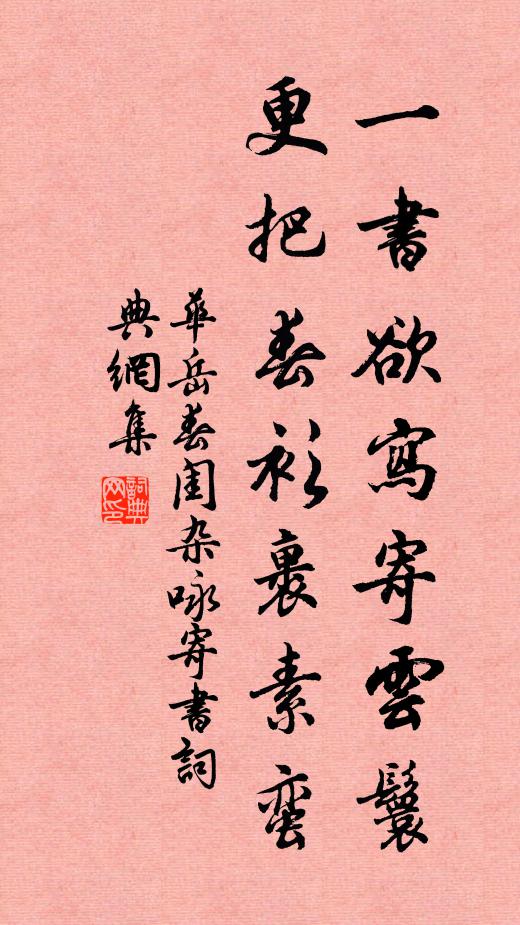 一書欲寫寄雲鬟
更把春衫裹素蠻
華岳春閨杂咏寄書詞
典網集
詞典
网印